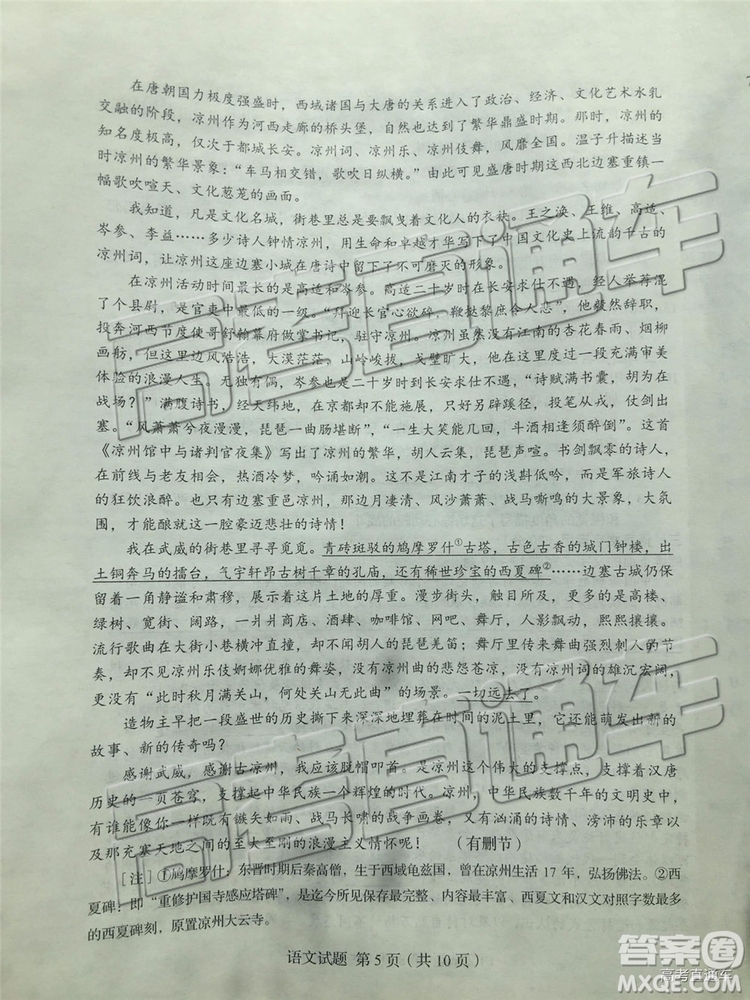 在唐朝国力极度强盛时，西域诸国与大唐的关系进入了政治、经济、文化艺术水乳
交融的阶段，凉州作为河西走廊的桥头堡，自然也与唐王朝一同走向辉煌。那时，凉州的
知名度极高，仅次于都城长安。凉州词、凉州乐、凉州伎舞，风靡全国。温子升描写
当时凉州的繁华景象：“车马相交错，歌吹日纵横。”由此可见盛唐时期这西北边塞重镇一
幅歌吹喧天、文化葱茏的画面。
我知道，凡是文化名城，街巷里总是要飘曳着文化人的衣袂。王之涣、王维、高适、
岑参、李益……多少诗人钟情凉州，用生命和卓越才华写下了中国文化史上流韵千古的
凉州词，让凉州这座边塞小城在唐诗中留下了不可磨灭的形象。
在凉州活动时间最长的是高适和岑参。高适二十岁时在长安求仕不遇，经人举荐混
了个县尉，是官吏中最低的一级。“拜迎长官心欲碎，鞭挞黎庶令人悲”，他毅然辞职，
投奔河西节度使哥舒翰幕府做掌书记，驻守凉州。凉州虽没有江南的杏花春雨、烟柳
画舫，但这里边风浩浩，大漠茫茫，山岭峻拔，戈壁旷大，他在这里度过一生充满审美
体验的浪漫人生。无独有偶，岑参也是二十岁时到长安求仕不遇，“诗赋满书囊，胡为在
战场？”满腹诗书，经天纬地，在京都不能施展，只好另辟蹊径，投笔从戎，仗剑出
塞。“风萧萧兮夜漫漫，琵琶一曲肠堪断”，“一生大笑能几回，斗酒相逢须醉倒”。这首
《凉州馆中与诸判官夜集》写出了凉州的繁华，胡人云集，琵琶声喧。书剑飘零的诗人，
在前线与老友相会，热酒冷梦，吟诵如潮。这不是江南才子的浅斟低吟，而是军旅诗人
的狂饮浪醉。也只有边塞重邑凉州，那边月凄清、风沙萧萧、战马嘶鸣的大景象，大氛
围，才能酿就这一腔豪迈悲壮的诗情！
我在武威的街巷里寻寻觅觅。青砖斑驳的鸠摩罗什①古塔，古色古香的城门钟楼，出
土铜奔马的擂台，气宇轩昂古树千章的孔庙，还有稀世珍宝的西夏碑②……边塞古城仍保
留着一角静谧和肃穆，展示着这片土地的厚重。漫步街头，目睹所及，更多的是高楼、
绿树、宽街、阔路，一片片商店、酒肆、咖啡馆、网吧、舞厅，人影飘动，熙熙攘攘。
流行歌曲在大街小巷横冲直撞，却不闻胡人的琵琶羌笛，舞厅里的劲曲强烈刺人的节
奏，却不见凉州乐伎婀娜优雅的舞姿，凉州曲的悲怨苍凉，凉州词的雄沉宏阔，
更没有“此时秋月满关山，何处关山无此曲”的情境。一切远去了。
造物主早把一段盛世的历史撕下来深深地埋葬在时间的泥土里，它还能萌发出新的
故事、新的传奇吗？
感谢武威，感谢古凉州，我应该脱帽叩首。是凉州这个伟大的支撑点，支撑着汉唐
历史的一页苍穹，支撑起中华民族一个辉煌的时代。凉州，中华民族数千年的文明史中，
有谁能像你一样既有镞矢如雨、战马长嘶的战争画卷，又有汹涌的诗情、滂沛的乐章以
及那充塞天地之间的至大至刚的浪漫主义情怀呢！（有删节）
［注］①鸠摩罗什：东晋时期后秦高僧，生于西域龟兹国，曾在凉州生活 17 年，弘扬佛法。②西
夏碑：即“重修护国寺感应塔碑”，是迄今所见保存最完整、内容最丰富、西夏文和汉文对照字数最多
的西夏碑刻，原置凉州大云寺。
语文试题 第 5 页（共 10 页）
高考直通车
高考直通车
高考直通车
答案圈
高考直通车